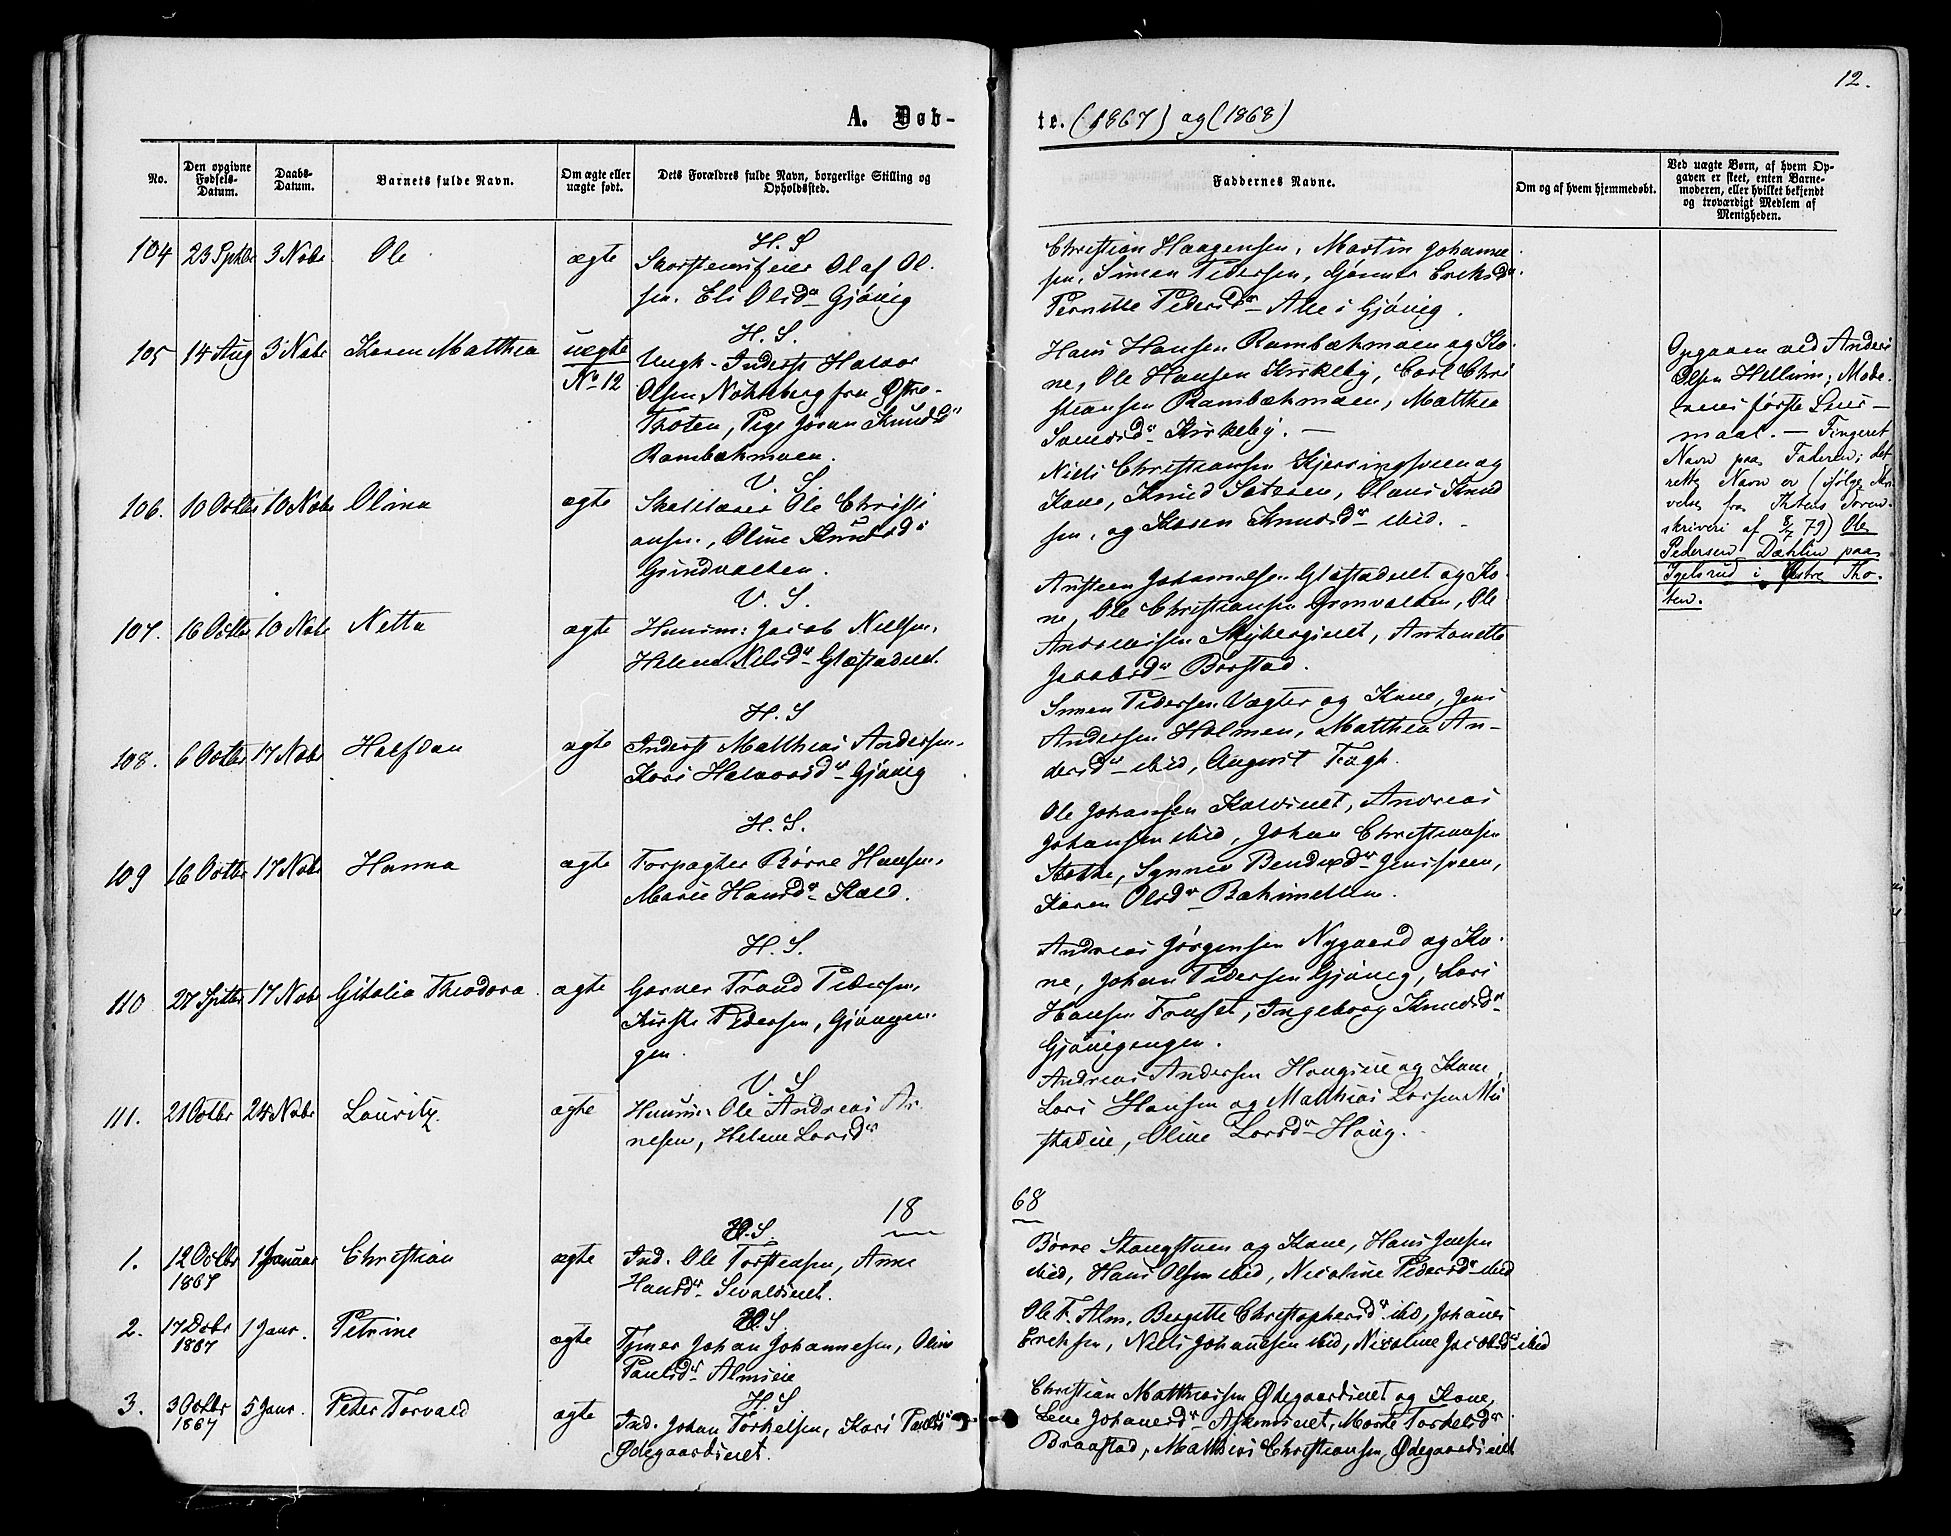 12.
A. Døb-
te. (1867) og (1868)
No.
Den opgivne Fødsels-Datum.
Daabs-Datum.
Barnets fulde Navn.
Om ægte eller uægte født.
Dets Forældres fulde Navn, borgerlige Stilling og Opholdssted.
Faddernes Navne.
Om og af hvem hjemmedøbt.
Ved uægte Børn, af hvem Op-
gaven er skeet, enten Barne-
moderen, eller hvilket bekjendt
og troværdigt Medlem af
Menigheden.
104 23 Sptbr 3 Nobr Ole ægte
H. S
Skorsteinsfeier Olaf Ol-
sen. Eli Olsdr Gjøvig
Christian Haagensen, Martin Johanne-
sen, Simen Pedersen, Gunner Eriksdr
Pernille Pedersdr Alle i Gjøvig.
105 14 Aug 3 Nobr Karen Matthea uægte
No 12
H. S.
Ungk. Inderst Halvor
Olsen Nøkkeberg fra Østre
Thoten, Pige Joran Knudsdr
Rambækmoen.
Hans Hansen Rambækmoen og Ko-
ne, Ole Hansen Kirkeby, Carl Chri-
stiansen Rambækmoen, Matthea
Svendsdr Kirkeby. —
Opgaven ved Andreas
Olsen Hellum; Mode-
rens første Leier-
maal. — Fingeret
Navn paa Faderen; det
rette Navn er (ifølge Skri-
velse fra Thotens Soren-
skriveri af 8/7 79) Ole
Pedersen Dæhlin paa
Igelsrud i Østre Tho-
ten.
106. 10 Octbr 10 Nobr Olina ægte
V. S.
Skolelærer Ole Christi
ansen, Oline Knudsdr
Grindvolden.
Niels Christiansen Kjerringsveen og
Kone, Knud Knud
sen, og Karen Knudsdr ibid.
107. 16 Octbr 10 Nobr Netta ægte
V. S.
Huusm: Jacob Nielsen,
Helene Nilsdr Glæstadeiet.
Ansteen Johannesen Glæstadeiet og Ko-
ne, Ole Christiansen Grinvolden, Ole
Andreassen Skybergeiet, Antonette
Jacobsdr Borstad.
108. 6 Octbr 17 Nobr Halfdan ægte
H. S
Inderst Matthias Andersen,
Kari Halvorsdr Gjøvig
Simen Pedersen Vægter og Kone, Jens
Andersen Holmen, Matthea An-
dersdr ibid, August Fagh.
109 16 Octbr 17 Nobr Hanna ægte
H. S.
Forpagter Børre Hansen,
Marie Hansdr Kald.
Ole Johansen Kaldseiet, Andreas
Johansen ibid, Johan Christiansen
Stokke, Synnev Bendixdr Jensveen,
Karen Olsdr Bækimellem.
110 27 Sptbr 17 Nobr Gitalia Theodora ægte
H. S.
Garver Trond Pedersen,
Kirsti Pedersen, Gjøvigen-
gen.
Andreas Jørgensen Nygaard og Ko-
ne, Johan Pedersen Gjøvig, Lars
Hansen Fonset, Ingeborg Knudsdr
Gjøvigengen.
111. 21 Octbr 24 Nobr Lauritz ægte
V. S
Huusm: Ole Andreas Ar-
nesen, Helene Larsdr
Andreas Andersen Hougseie og Kone,
Lars Hansen og Matthias Larsen Mu-
stadeie, Oline Larsdr Houg.
18 68
1. 12 Octbr 1867 1 Januar Christian ægte
V. S.
Ind. Ole Torstensen, Anne
Hansdr Sivaldseiet.
Børre Stangstuen og Kone, Hans Jensen
ibid, Hans Olsen ibid, Nicoline Pedersdr ibid
2. 17 Decbr 1867 1 Janr. Petrine ægte
V. S
Tømer Johan Johannesen, Oline
Paulsdr Almseie
Ole T. Alm, Bergitte Christophersdr ibid, Johanes
Eriksen, Niels Johannesen ibid, Nicoline Jacobsdr ibid
3. 3 Octbr 1867 5 Janr. Peter Torvald ægte
H. S
Ind. Johan Torkelsen, Kari Paulsdr
Ødegaardseiet.
Christian Matthiassen Ødegaardseiet og Kone,
Lene Johanesdr Askimseiet, Marte Torkelsdr
Braastad, Matthias Christiansen Ødegaardseiet